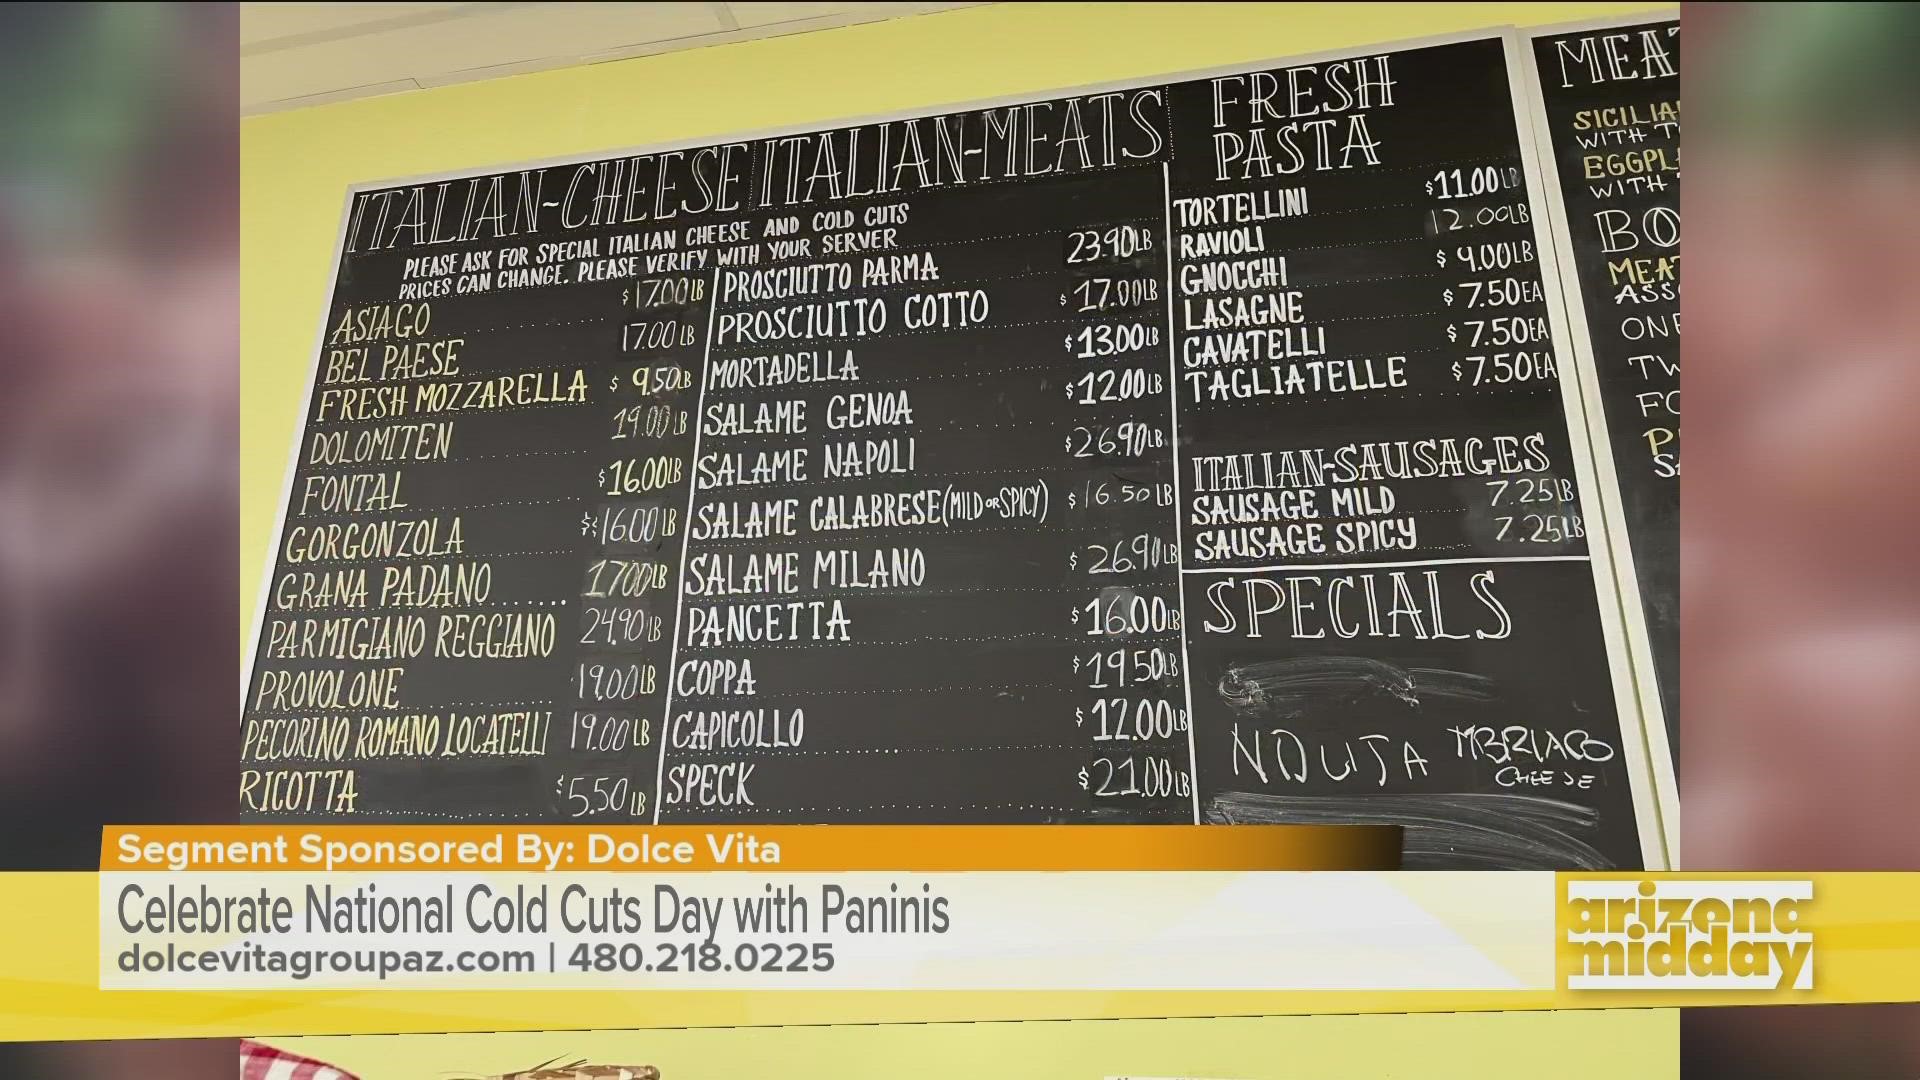 ITALIAN-CHEESE
PLEASE ASK FOR SPECIAL ITALIAN CHEESE AND COLD CUTS
PRICES CAN CHANGE. PLEASE VERIFY WITH YOUR SERVER
ASIAGO $17.00LB
BEL PAESE 17.00 LB
FRESH MOZZARELLA $9.50LB
DOLOMITEN 19.00LB
FONTAL $16.00LB
GORGONZOLA $16.00LB
GRANA PADANO 1700LB
PARMIGIANO REGGIANO 24.90LB
PROVOLONE 19.00LB
PECORINO ROMANO LOCATELLI 19.00 LB
RICOTTA $5.50 LB
ITALIAN-MEATS
PROSCIUTTO PARMA 23.90LB
PROSCIUTTO COTTO $17.00LB
MORTADELLA $13.00LB
SALAME GENOA $12.00LB
SALAME NAPOLI $26.90LB
SALAME CALABRESE (MILD OR SPICY) $16.50 LB
SALAME MILANO $26.90LB
PANCETTA $16.00LB
COPPA $19.50LB
CAPICOLLO $12.00LB
SPECK $21.00LB
FRESH
PASTA
TORTELLINI $11.00LB
RAVIOLI 12.00LB
GNOCCHI $9.00LB
LASAGNE $7.50EA
CAVATELLI $7.50EA
TAGLIATELLE $7.50EA
ITALIAN-SAUSAGES
SAUSAGE MILD 7.25LB
SAUSAGE SPICY 7.25LB
SPECIALS
NDUJA
MBRIACO
CHEESE
MEAT
SICILIA
WITH T
EGGPL
WITH
BO
MEAT
ASS
ONE
TW
FO
P
SA
Segment Sponsored By: Dolce Vita
Celebrate National Cold Cuts Day with Paninis
dolcevitagroupaz.com | 480.218.0225
arizona
midday